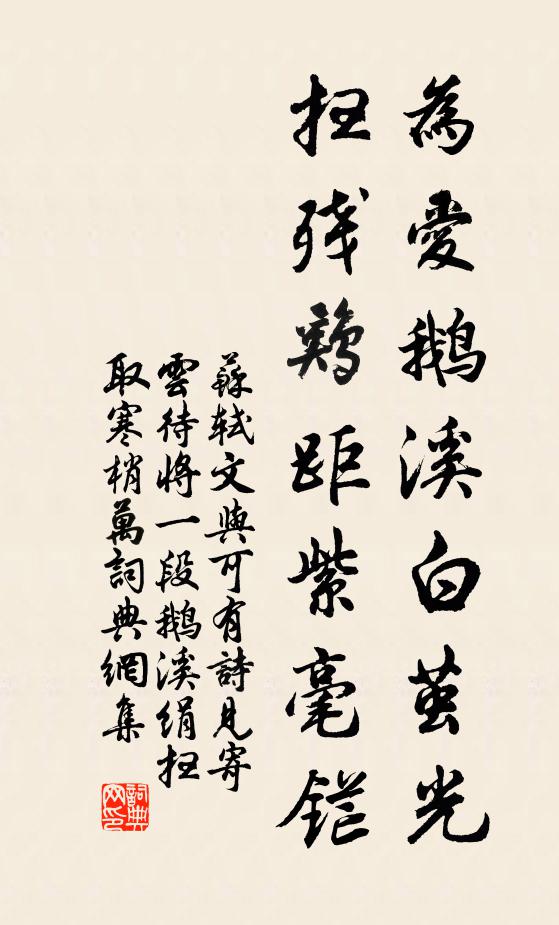 為愛鵝溪白繭光
掃殘鷄距紫毫鋩
蘇軾文與可有詩見寄
雲待將一段鵝溪絹掃
取寒梢萬詞典網集
詞典网印